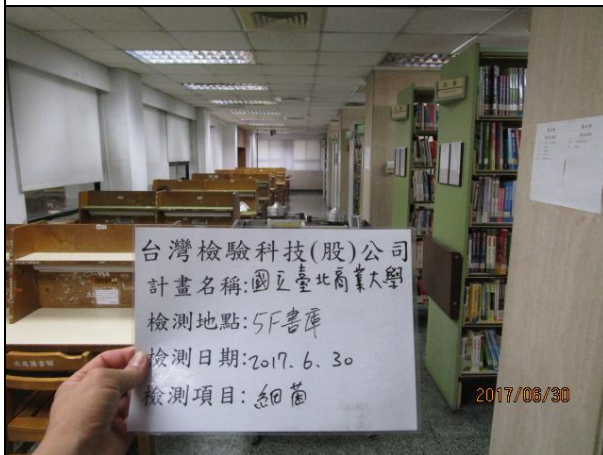 台灣檢驗科技(股)公司
計畫名稱:國立臺北商業大學
檢測地點:5F書庫
檢測日期:2017.6.30
檢測項目:細菌
2017/06/30